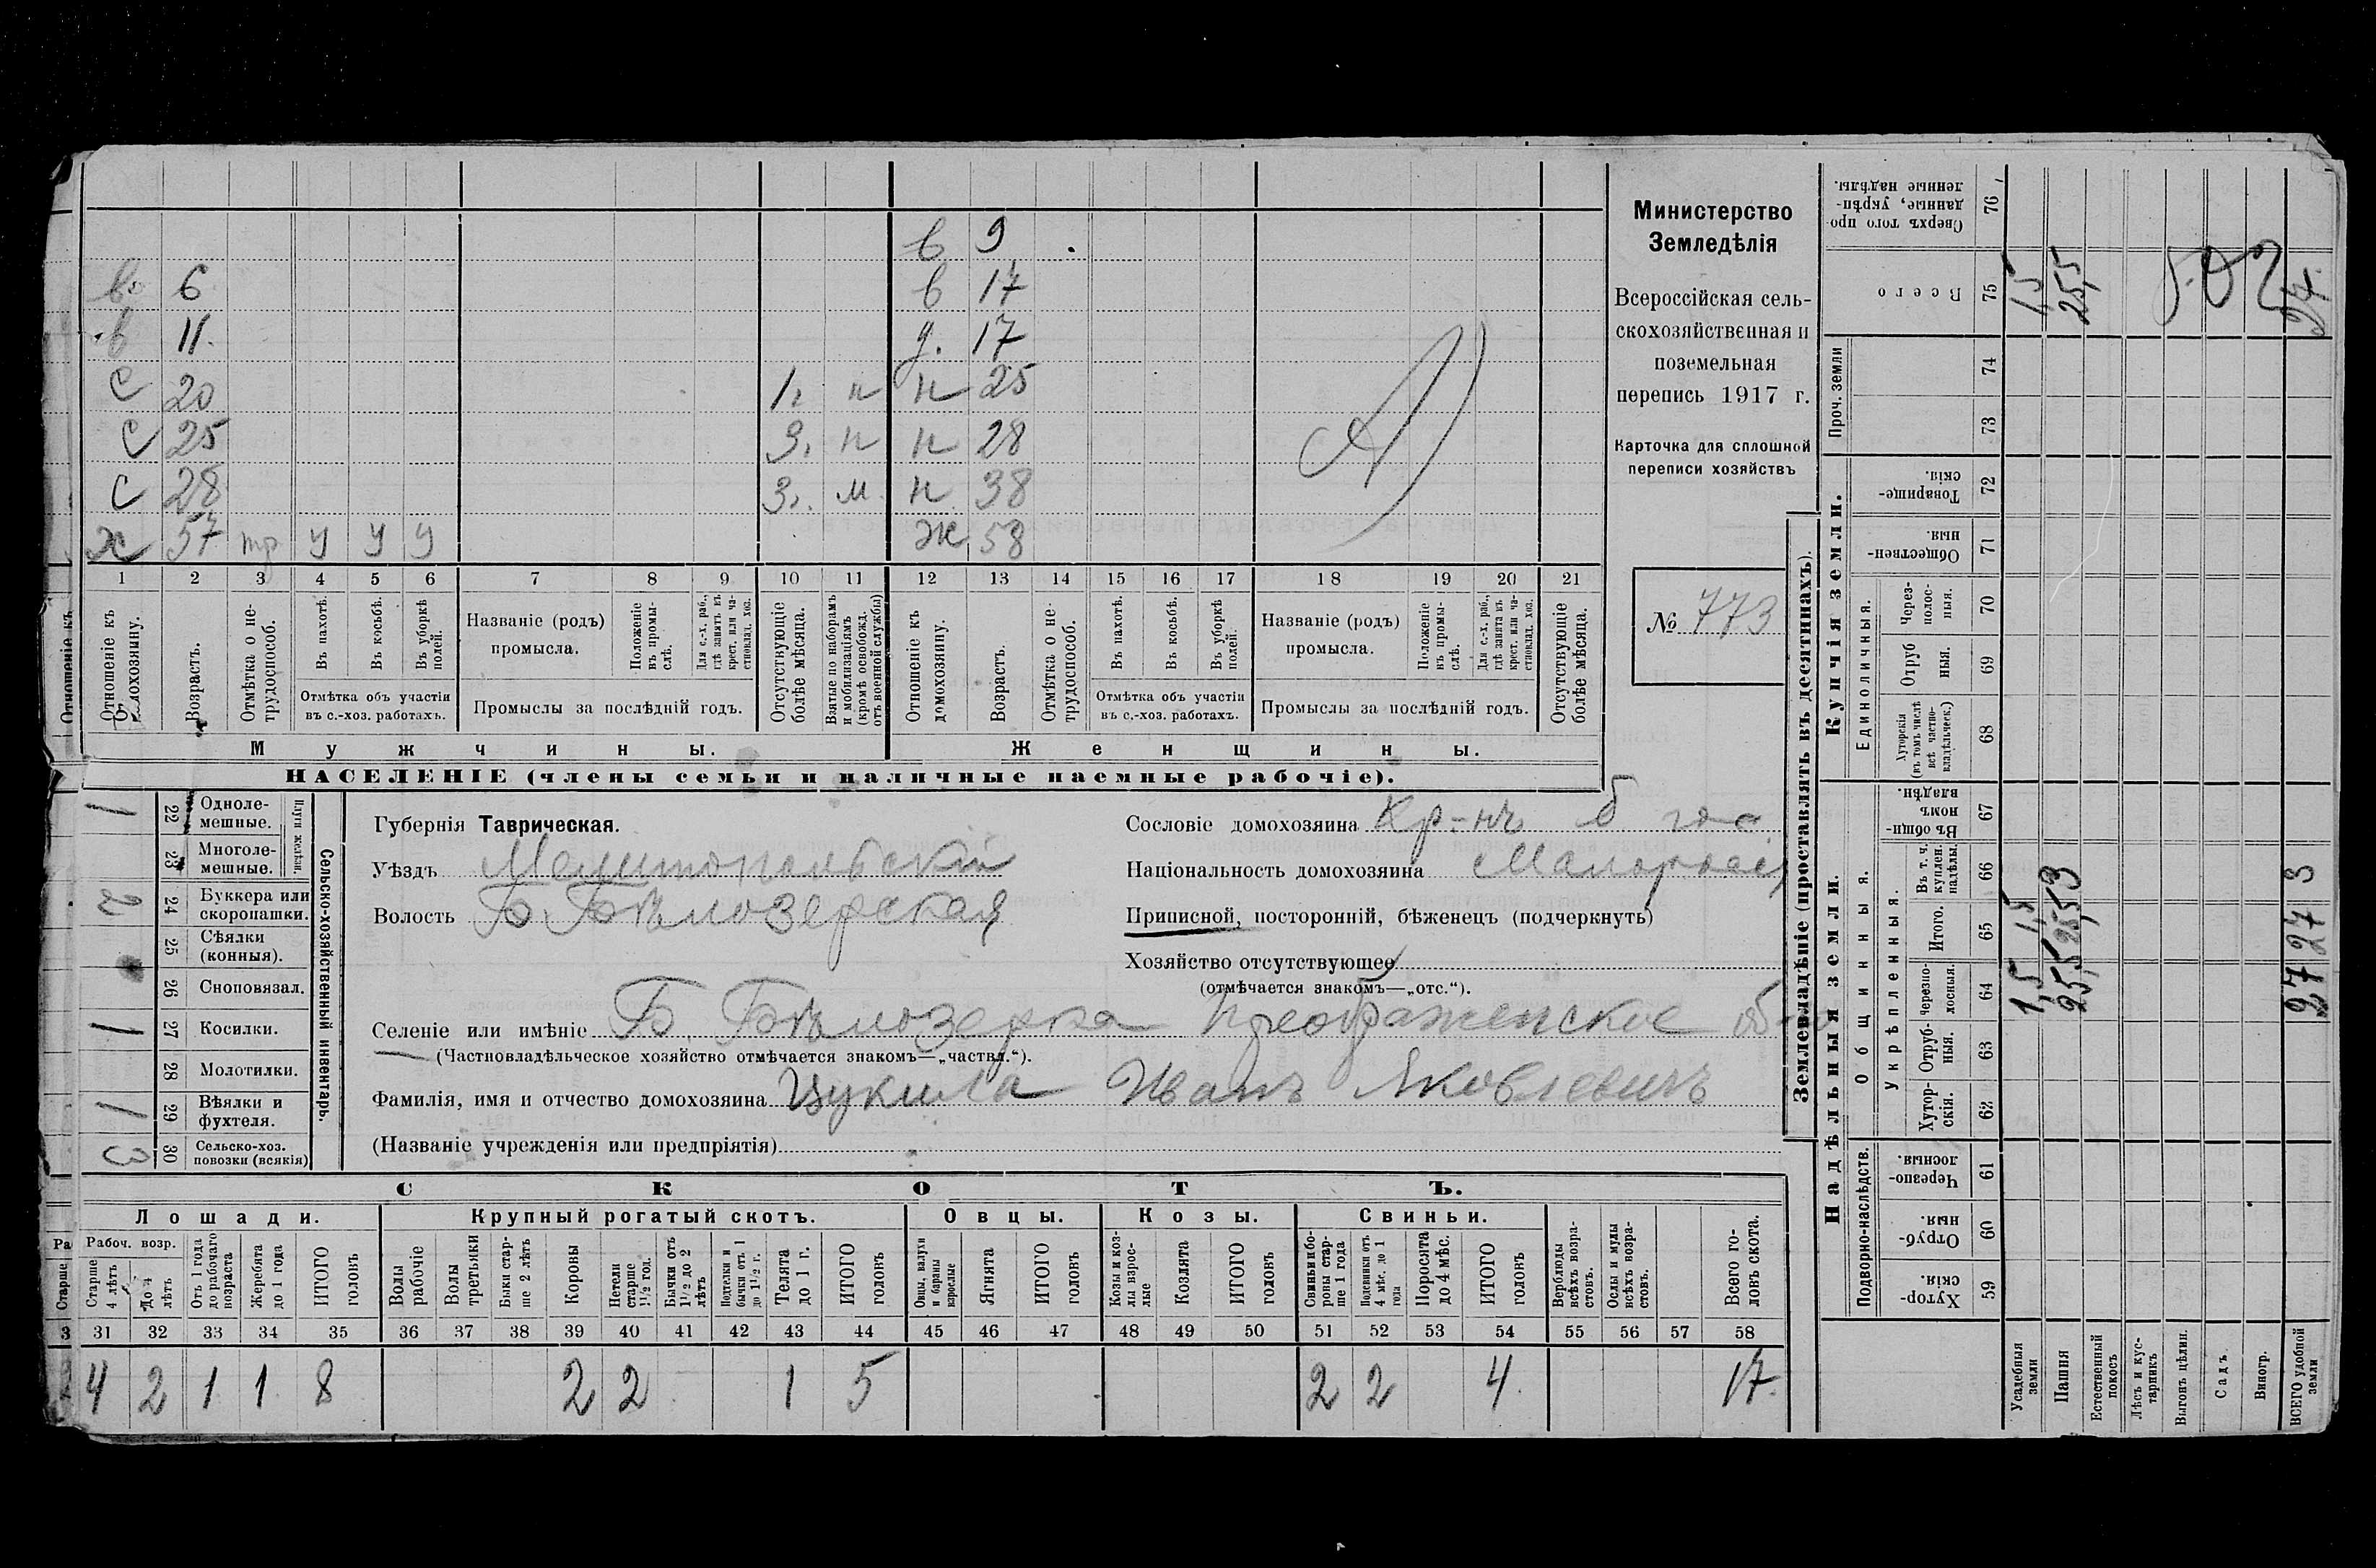 в 9
в 6 в 17
в 11 д. 17
с 20 н 25
с 25 3. н н 28
с 28 3. м. н 38
х 57 тр у у у ж 58
1 2 3 4 5 6 7 8 9 10 11 12 13 14 15 16 17 18 19 20 21
Отношеніе къ домохозяину.
Возрастъ.
Отмѣтка о нетрудоспособ.
Въ пахотѣ.
Въ косьбѣ.
Въ уборкѣ полей.
Отмѣтка объ участіи
въ с.-хоз. работахъ.
Названіе (родъ)
промысла.
Положеніе въ промыслѣ.
Для с.-х. раб., гдѣ занятъ въ крест. или частновлад. хоз.
Промыслы за послѣдній годъ.
Отсутствующіе болѣе мѣсяца.
Взятые по наборамъ и мобилизаціямъ (кромѣ освобожд. отъ военной службы)
Отношеніе къ домохозяину.
Возрастъ.
Отмѣтка о нетрудоспособ.
Въ пахотѣ.
Въ косьбѣ.
Въ уборкѣ полей.
Отмѣтка объ участіи
въ с.-хоз. работахъ.
Названіе (родъ)
промысла.
Положеніе въ промыслѣ.
Для с.-х. раб., гдѣ занята въ крест. или частновлад. хоз.
Промыслы за послѣдній годъ.
Отсутствующіе болѣе мѣсяца.
Мужчины. Женщины.
НАСЕЛЕНІЕ (члены семьи и наличные наемные рабочіе).
Министерство
Земледѣлія
Всероссійская сель-
скохозяйственная и
поземельная
перепись 1917 г.
Карточка для сплошной
переписи хозяйствъ
№ 773
Сельско-хозяйственный инвентарь.
Плуги желѣзн.
1 22 Одноле-
мешные.
23 Многоле-
мешные.
2 24 Буккера или
скоропашки.
25 Сѣялки
(конныя).
26 Сноповязал.
1 27 Косилки.
28 Молотилки.
1 29 Вѣялки и
фухтеля.
3 30 Сельско-хоз.
повозки (всякія)
Губернія Таврическая.
Уѣздъ Мелитопольскій
Волость Б. Бѣлозерская
Сословіе домохозяина Кр-нъ
Національность домохозяина Малоросс
Приписной, посторонній, бѣженецъ (подчеркнуть)
Хозяйство отсутствующее
(отмѣчается знакомъ—„отс.“).
Селеніе или имѣніе Б. Бѣлозерка Преображенское об
(Частновладѣльческое хозяйство отмѣчается знакомъ—„частвл.“).
Фамилія, имя и отчество домохозяина Цукила Иванъ Яковлевичъ
(Названіе учрежденія или предпріятія)
СКОТЪ.
Лошади. Крупный рогатый скотъ. Овцы. Козы. Свиньи.
Рабоч. возр.
Старше 4 лѣтъ
До 4 лѣтъ
Отъ 1 года до рабочаго возраста
Жеребята до 1 года
ИТОГО головъ
Волы рабочіе
Волы третьяки
Быки старше 2 лѣтъ
Коровы
Нетели старше 1½ год.
Бычки отъ 1½ до 2 лѣтъ
Подтелки и бычки отъ 1 до 1½ г.
Телята до 1 г.
ИТОГО головъ
Овцы, валухи и бараны взрослые
Ягнята
ИТОГО головъ
Козы и козлы взрослые
Козлята
ИТОГО головъ
Свиньи и боровы старше 1 года
Подсвинки отъ 4 мѣс. до 1 года
Поросята до 4 мѣс.
ИТОГО головъ
Верблюды всѣхъ возрастовъ.
Ослы и мулы всѣхъ возрастовъ.
Всего головъ скота.
31 32 33 34 35 36 37 38 39 40 41 42 43 44 45 46 47 48 49 50 51 52 53 54 55 56 57 58
4 2 1 1 8 2 2 1 5 2 2 4 17
Землевладѣніе (проставлять въ десятинахъ).
Надѣльныя земли. Купчія земли. Проч. земли
Подворно-наслѣдств.
Общинныя.
Укрѣпленныя.
Единоличныя.
Сверхъ того проданные, укрѣпленные надѣлы. 76
Всего 75
74
73
Товарищескія. 72
Общественныя. 71
Черезполосныя. 70
Отрубныя. 69
Хуторскія (въ томъ числѣ всѣ частновладѣльческ.) 68
Въ общинномъ владѣн. 67
Въ т. ч. куплен. надѣлы. 66
Итого. 65
Черезполосныя. 64
Отрубныя. 63
Хуторскія. 62
Черезполосныя. 61
Отрубныя. 60
Хуторскія. 59
Усадебныя земли 1,5 1,5 1,5
Пашня 25,5 25,5 3 25,5
Естественный покосъ
Лѣсъ и кустарникъ
Выгонъ цѣлин.
Садъ
Виногр.
ВСЕГО удобной земли 27 27 3